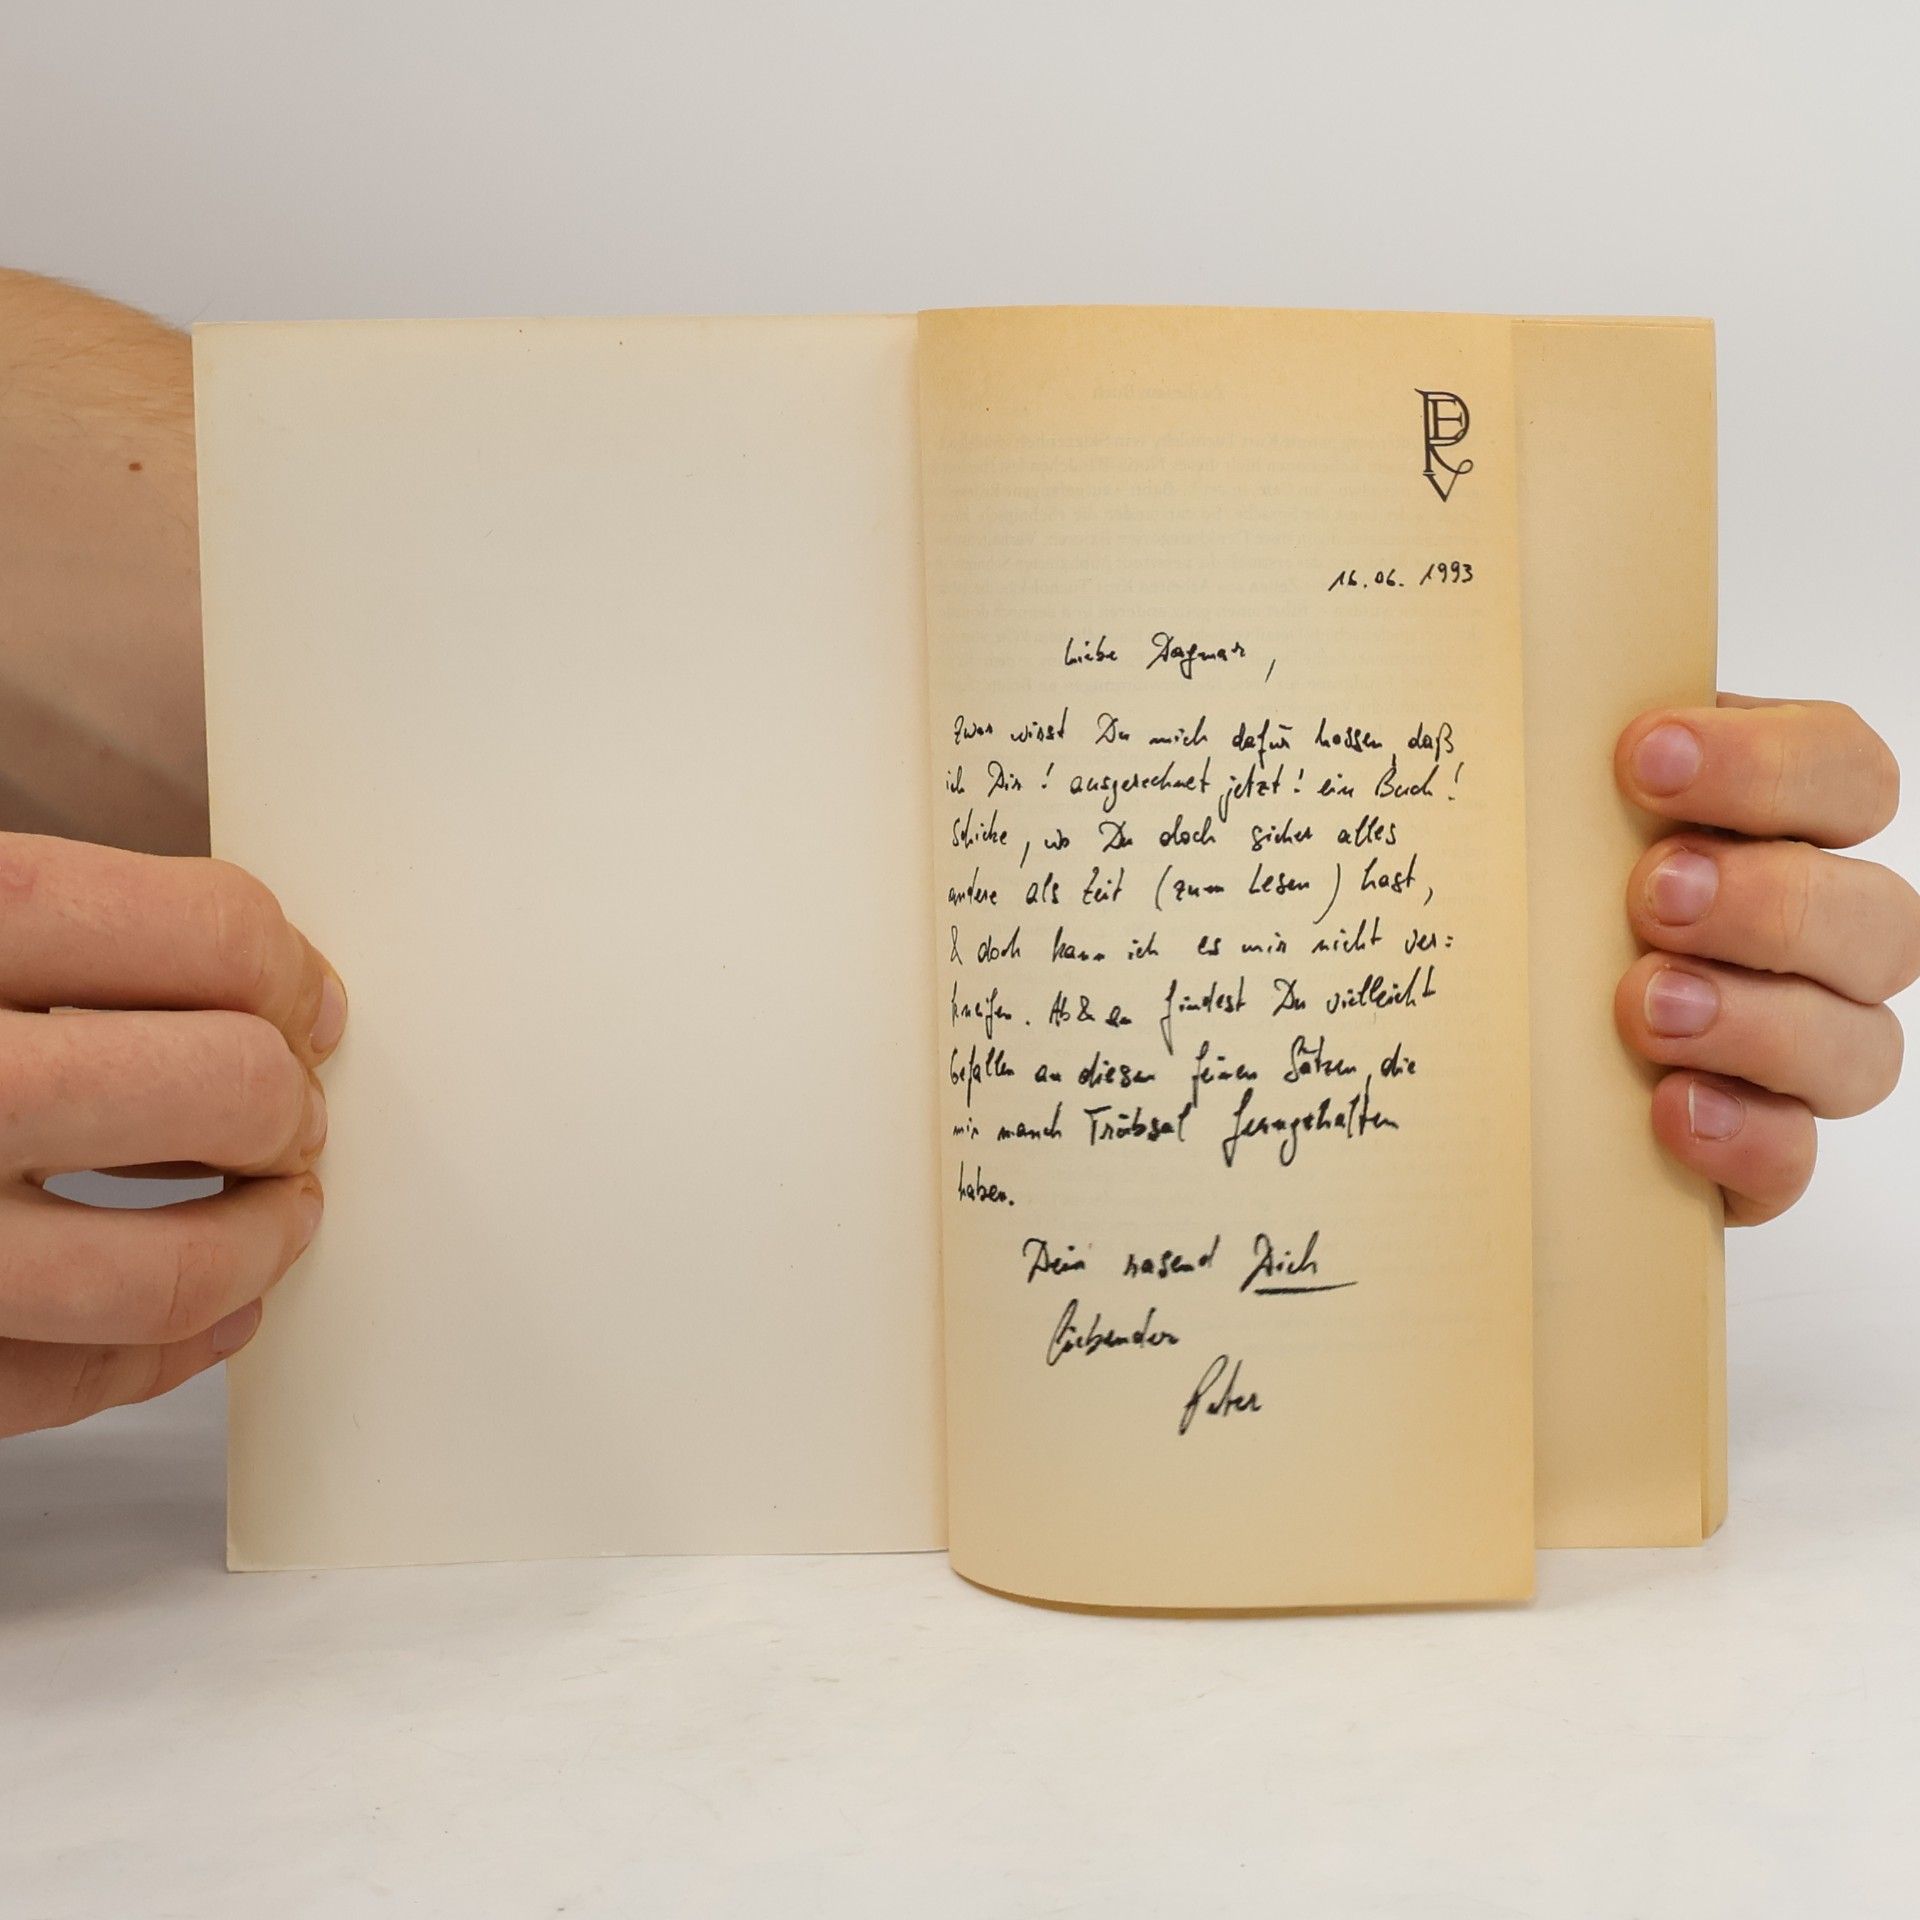 ERV
16.06. 1993
Liebe Dagmar,
Zwar wirst Du mich dafür hassen, daß
ich Dir ! ausgerechnet jetzt! ein Buch!
schicke, wo Du doch sicher alles
andere als Zeit (zum Lesen) hast,
& doch kann ich es mir nicht ver=
kneifen. Ab & an findest Du vielleicht
Gefallen an diesen feinen Sätzen, die
mir manch Trübsal ferngehalten
haben.
Dein rasend Dich
Liebender
Peter